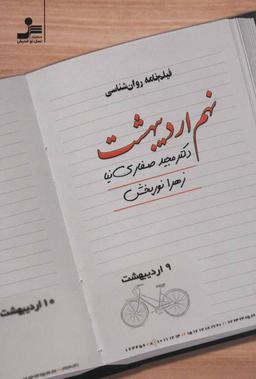 نسل نو اندیش
فیلمنامه روان‌شناسی
نهم اردیبهشت
دکتر مجید صفاری نیا
زهرا نوربخش
۹ اردیبهشت
۱۰ اردیبهشت